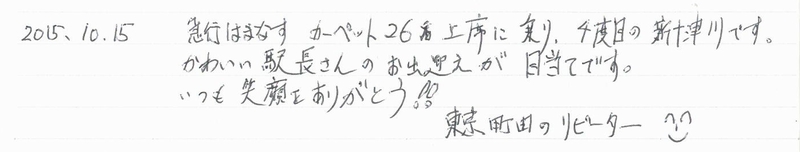 2015.10.15 急行はまなす カーペット26番上席に乗り、4度目の新十津川です。
かわいい駅長さんのお出迎えが目当てです。
いつも笑顔をありがとう!!
東京町田のリピーター